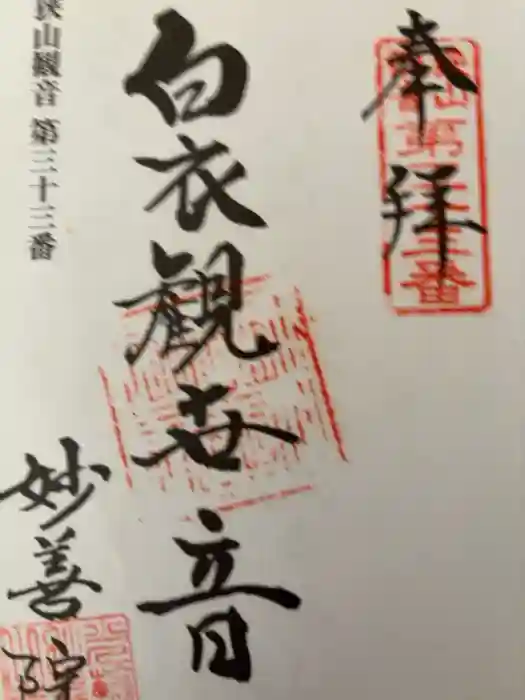 奉拝
第三十三番
白衣観世音
妙善院
狭山観音 第三十三番